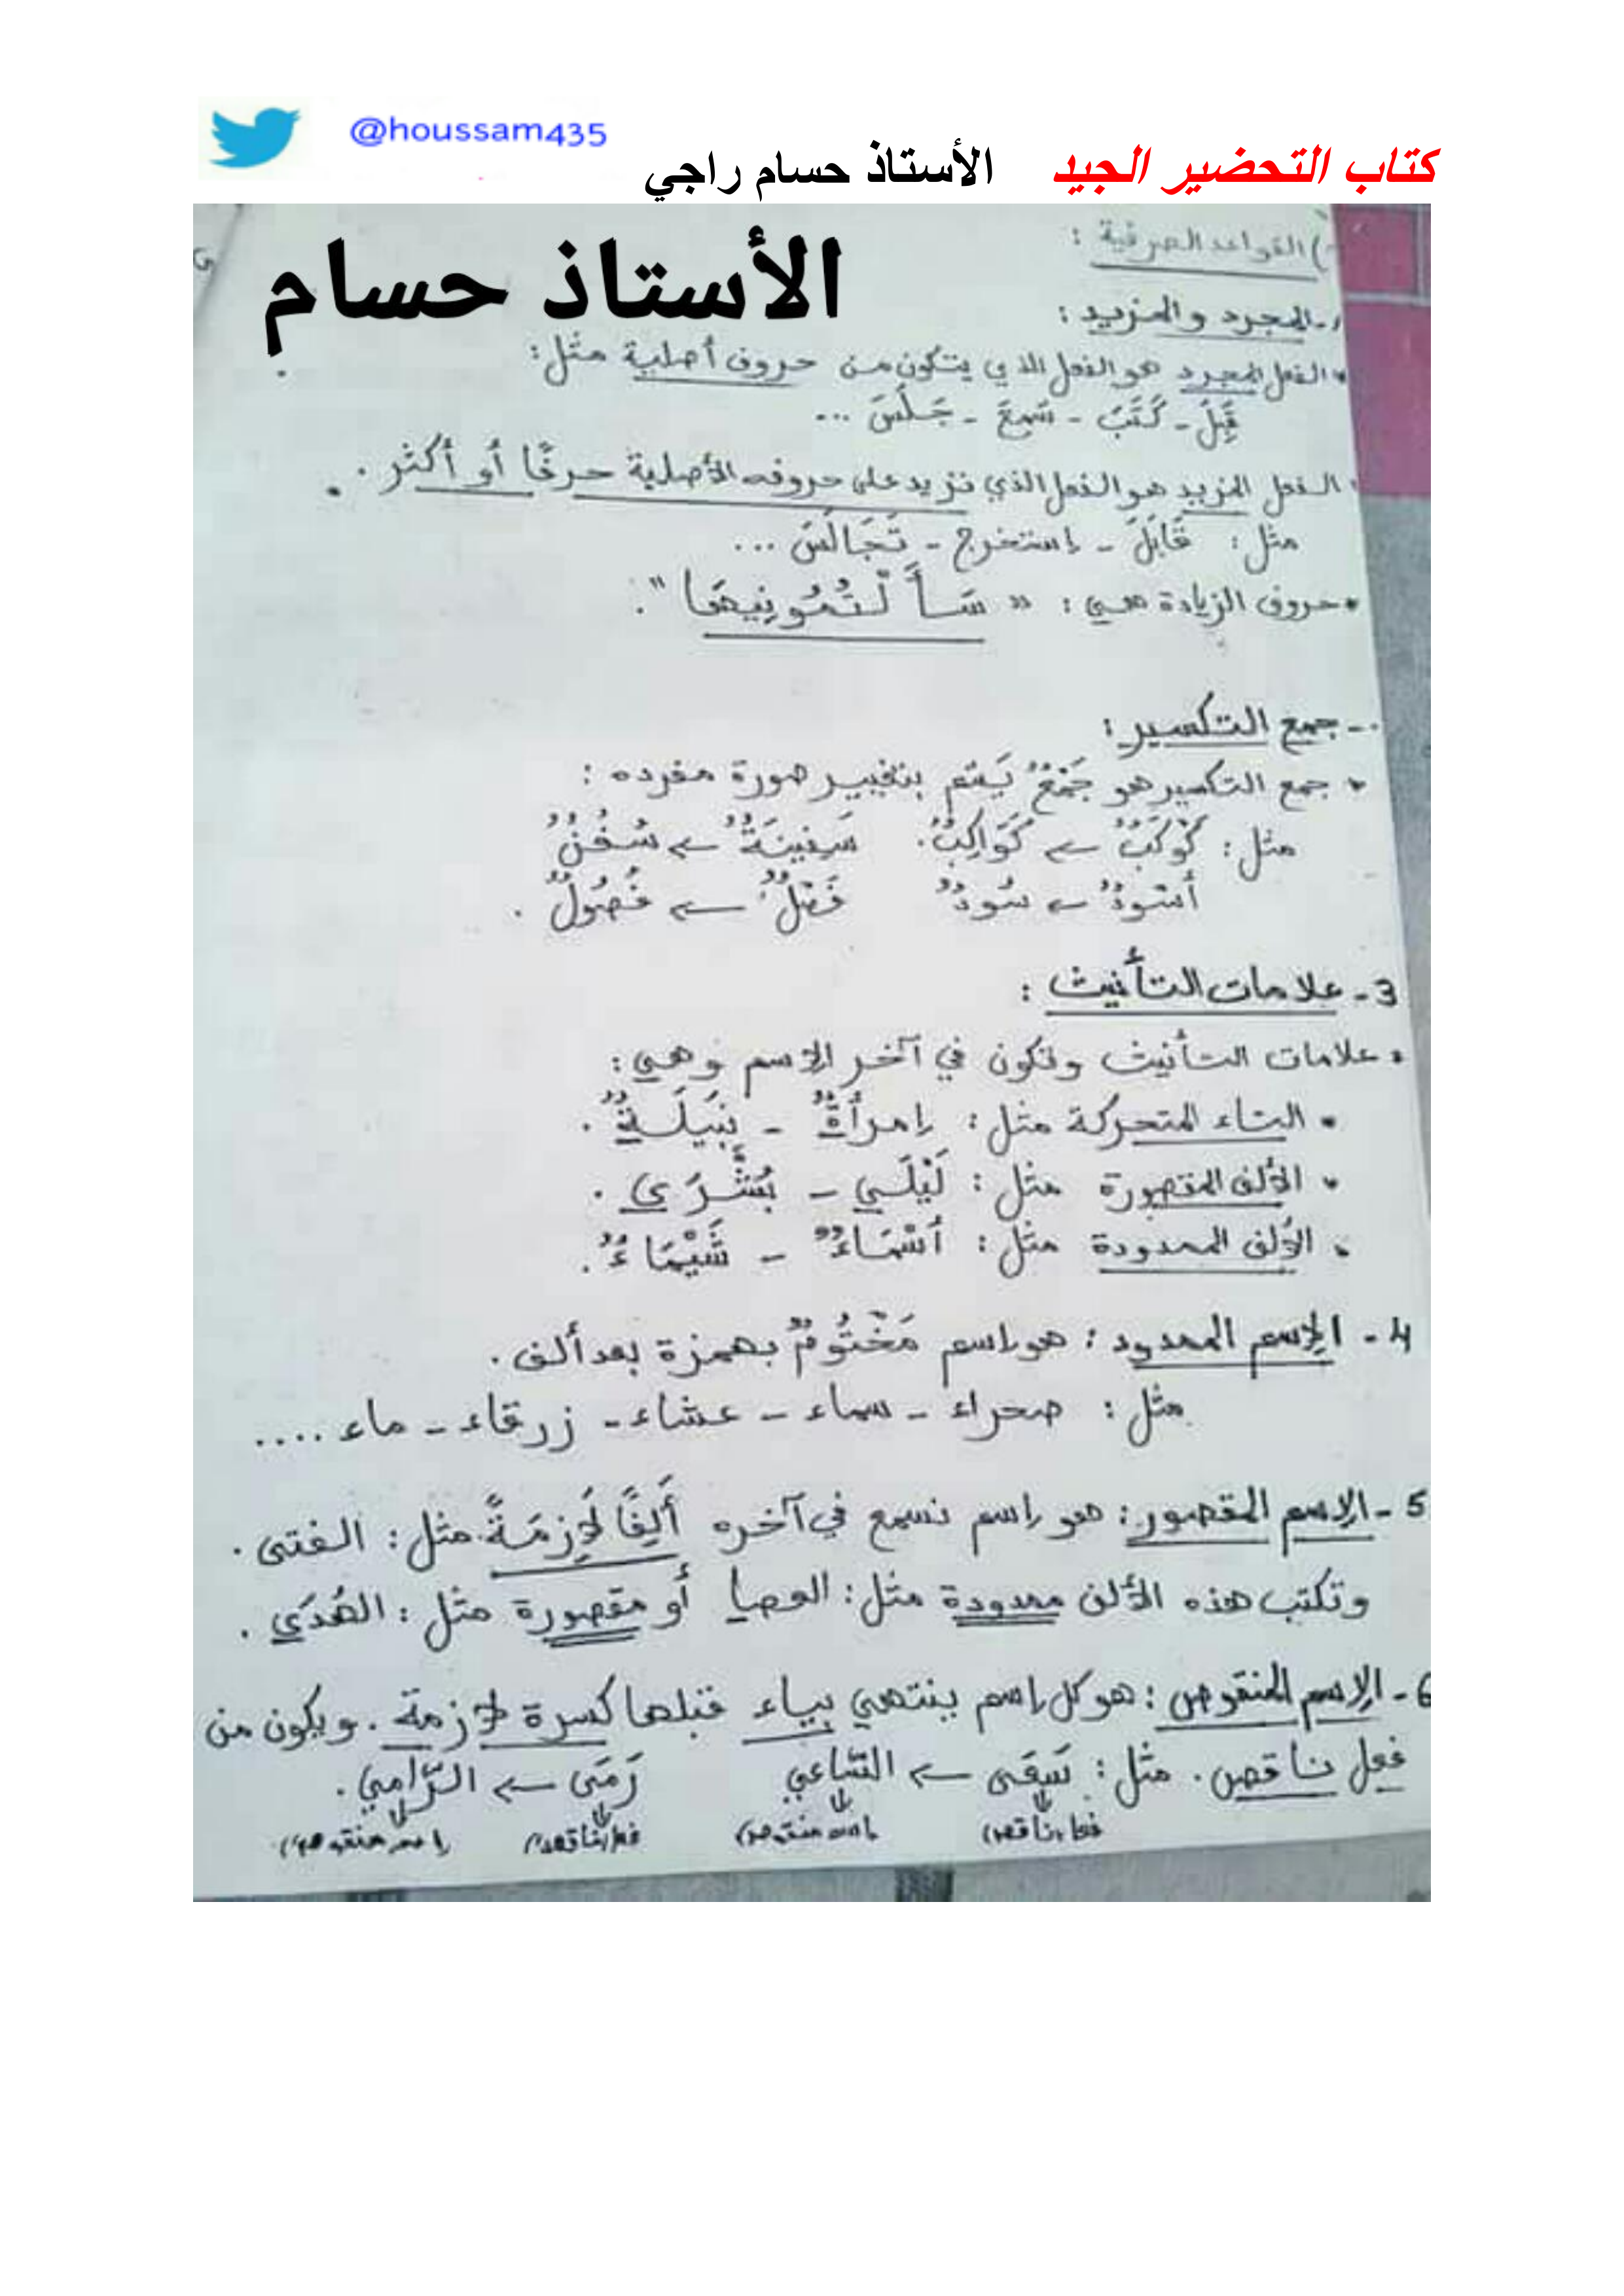 @houssam435
كتاب التحضير الجيد الأستاذ حسام راجي
الأستاذ حسام
) القواعد الصرفية :
1- المجرد والمزيد :
• الفعل المجرد هو الفعل الذي يتكون من حروف أصلية مثل :
قَبِلَ - كَتَبَ - سَمِعَ - جَلَسَ ...
• الفعل المزيد هو الفعل الذي تزيد على حروفه الأصلية حرفًا أو أكثر .
مثل : قَابَلَ - إستخرج - تَجَالَسَ ...
• حروف الزيادة هي : " سَأَلْتُمُونِيهَا ".
- جمع التكسير :
• جمع التكسير هو جَمْعٌ يَتم بتغيير صورة مفرده :
مثل : كَوْكَبٌ ← كَوَاكِبٌ . سَفِينَةٌ ← سُفُنٌ
أسْودٌ ← سُودٌ فَصْلٌ ← فُصُولٌ .
3 - علامات التأنيث :
• علامات التأنيث وتكون في آخر الإسم وهي :
• التاء المتحركة مثل : إمرأةٌ - نَبِيلَةٌ .
• الألف المقصورة مثل : لَيْلَى - بُشْرَى .
• الألف الممدودة مثل : أَسْمَاءٌ - شَيْمَاءٌ .
4 - الإسم الممدود : هو إسم مَخْتُومٌ بهمزة بعد ألف .
مثل : صحراء - سماء - عشاء - زرقاء - ماء ....
5 - الإسم المقصور : هو إسم نسمع في آخره أَلِفًا لَازِمَةً مثل : الفتى .
وتكتب هذه الألف ممدودة مثل : العصا أو مقصورة مثل : الهُدَى .
6 - الإسم المنقوص : هو كل إسم ينتهي بياء قبلها كسرة لازمة . ويكون من
فعل ناقص . مثل : سَعَى ← السَّاعي رَمَى ← الرَّامي .
فعل ناقص إسم منقوص فعل ناقص إسم منقوص